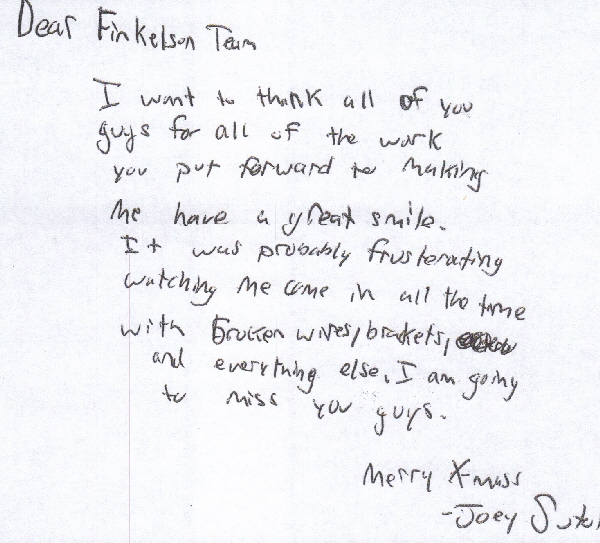 Dear Finkelson Team
I want to thank all of you
guys for all of the work
you put forward to making
me have a great smile.
It was probably frusterating
watching me come in all the time
with broken wires/brackets,
and everything else. I am going
to miss you guys.
Merry X-mass
-Joey